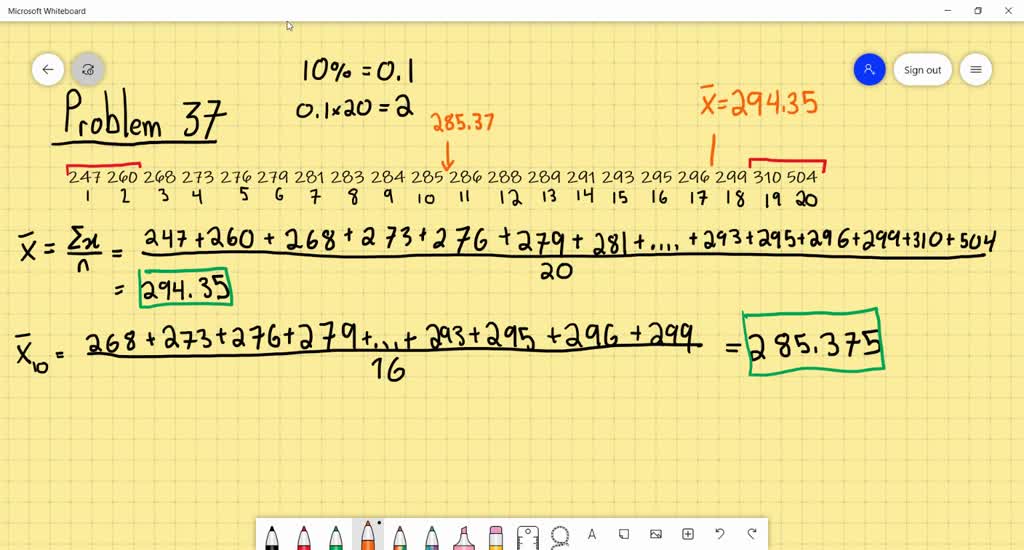 Microsoft Whiteboard
Sign out
10% = 0.1
Problem 37
0.1×20 = 2
285.37
x̄ = 294.35
247 260 268 273 276 279 281 283 284 285 286 288 289 291 293 295 296 299 310 504
1 2 3 4 5 6 7 8 9 10 11 12 13 14 15 16 17 18 19 20
x̄ = Σx/n = 247 + 260 + 268 + 273 + 276 + 279 + 281 + .... + 293 + 295 + 296 + 299 + 310 + 504 / 20
= 294.35
x̄₁₀ = 268 + 273 + 276 + 279 + ... + 293 + 295 + 296 + 299 / 16 = 285.375
A